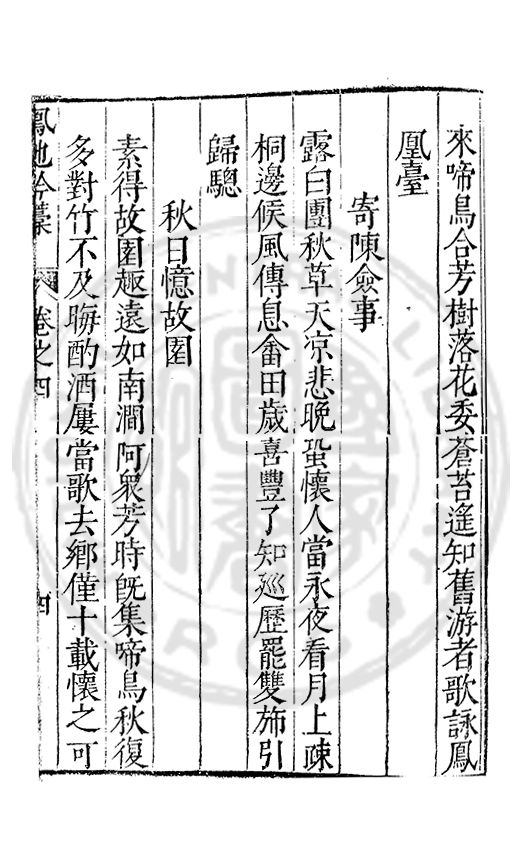 來啼鳥合芳樹落花委蒼苔遙知舊游者歌詠鳳
凰臺
寄陳僉事
露白團秋草天凉悲晚蛩懷人當永夜看月上疎
桐邊候風傳息畬田歲喜豐了知廵歷罷雙斾引
歸驄
秋日憶故園
素得故園趣遠如南澗阿衆芳時旣集啼鳥秋復
多對竹不及晦酌酒屢當歌去鄉僅十載懷之可
鳳池吟藁 卷之四 四